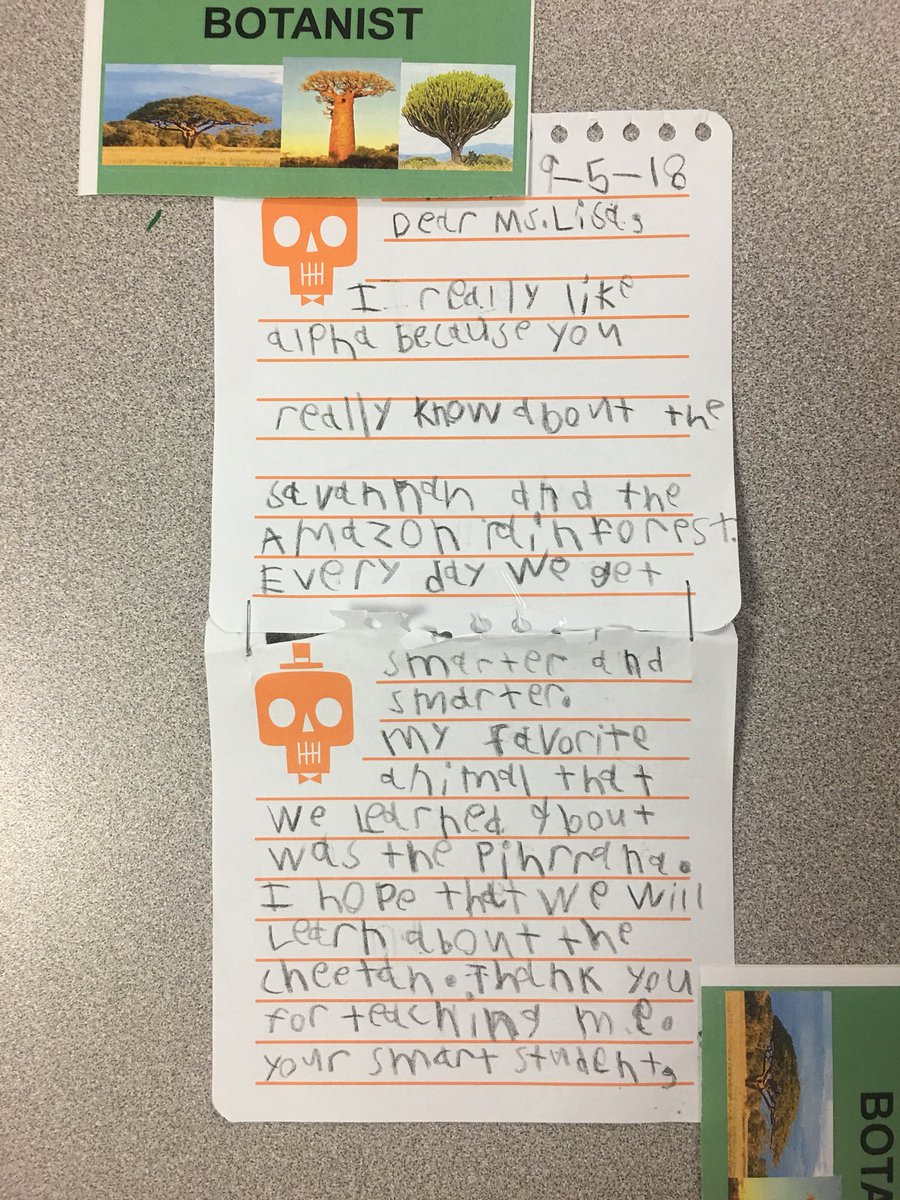 BOTANIST
9-5-18
Dear Ms. Lisa,
I really like
alpha because you
really know about the
savannah and the
Amazon rainforest.
Every day we get
smarter and
smarter.
My favorite
animal that
we learned about
was the Pihrrana.
I hope that we will
Learn about the
cheetah. Thank you
for teaching me.
your smart student,
BOTA